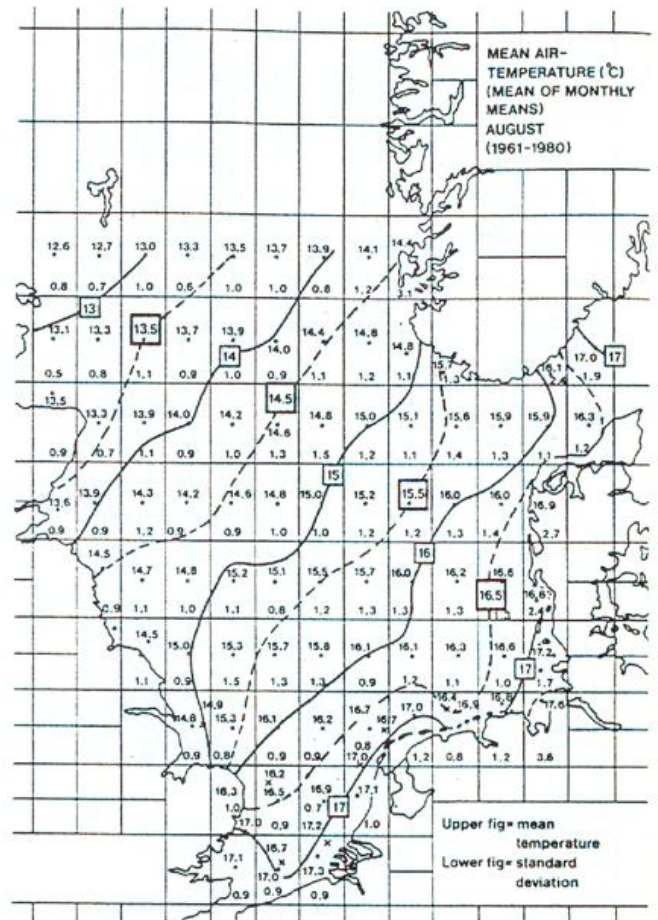 MEAN AIR-
TEMPERATURE (°C)
(MEAN OF MONTHLY
MEANS)
AUGUST
(1961-1980)
12.6 12.7 13.0 13.3 13.5 13.7 13.9 14.1 14.4
0.8 0.7 1.0 0.6 1.0 1.0 0.8 1.2 3.1
13
13.1 13.3 13.5 13.7 13.9 14.0 14.4 14.8 14.8
14 17.0 17
15.7 16.1
0.5 0.8 1.1 0.9 1.0 0.9 1.1 1.2 1.1 1.3 1.9
13.5 14.5
13.3 13.9 14.0 14.2 14.6 14.8 15.0 15.1 15.6 15.9 15.9 16.3
0.9 0.7 1.1 0.9 1.0 1.3 1.5 1.2 1.1 1.4 1.3 1.1 1.2
15
13.6 13.9 14.3 14.2 14.6 14.8 15.0 15.2 15.5 16.0 16.0 16.9
0.9 0.9 1.2 0.9 0.9 1.0 1.0 1.2 1.2 1.3 1.4 2.7
14.5 16
14.7 14.8 15.2 15.1 15.5 15.7 16.0 16.2 16.6
16.5
0.9 1.1 1.0 1.1 0.8 1.2 1.3 1.3 1.3 2.4
14.5 15.0 15.3 15.7 15.8 16.1 16.1 16.3 16.6 17.2
17
1.1 0.9 1.5 1.3 1.3 0.9 1.2 1.1 1.0 1.7
14.9 16.7 17.0 16.4 16.9 16.8 17.6
14.8 15.3 16.1 16.2 16.7
0.8
0.9 0.8 0.9 0.9 17.0 1.2 0.8 1.2 3.8
16.2
16.3 16.5 16.9 17.1
1.0 0.7 17
17.0 0.9 17.2 1.0
Upper fig= mean
temperature
Lower fig= standard
deviation
16.7
17.1 17.0 17.3
0.9 0.9 0.9